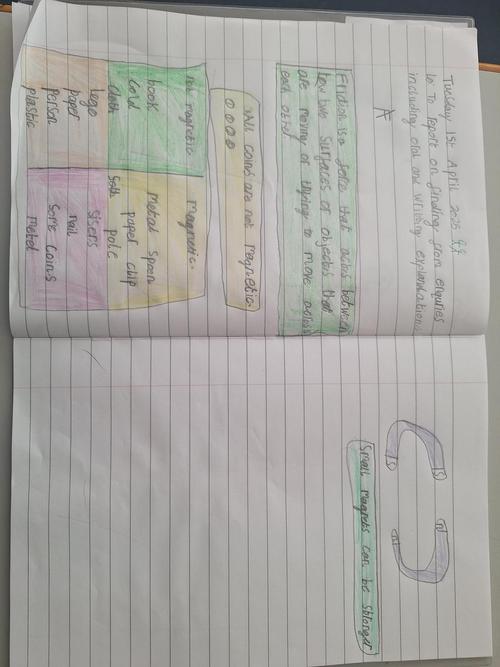 Tuesday 1st April 2025
lo To report on finding from enquries
including olal and writing explanations
A
Friction is a force that actos between
how two surfaces or objects that
are moving or thying to move across
each other
All coins are not magnetic.
Not magnetic magnetic.
book Metal spoon
Gold paper chip
cloth Goth pole
lego sisers
paper nail
person Some coins
plastic metel
S
S
N
N
Small magnets can be sblonger